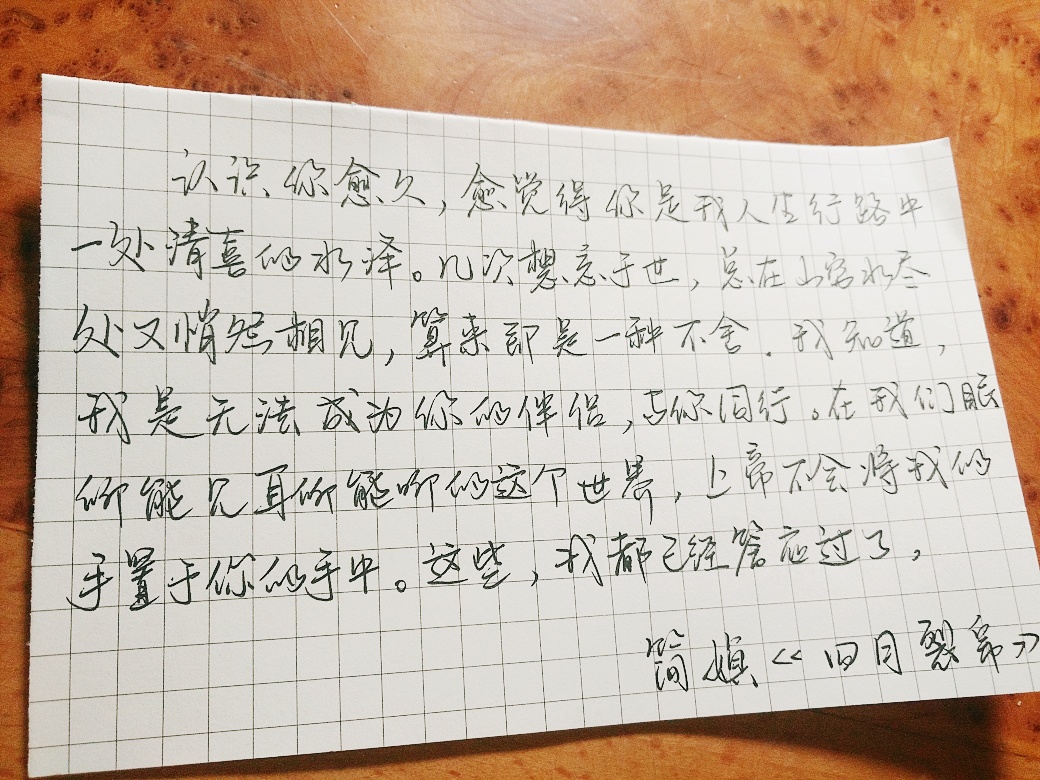 认识你愈久，愈觉得你是我人生行路中
一处清喜的水泽。几次想忘于世，总在山穷水尽
处又悄然相见，算来即是一种不舍．我知道，
我是无法成为你的伴侣，与你同行。在我们眼
所能见耳所能听的这个世界，上帝不会将我的
手置于你的手中。这些，我都已经答应过了，
简媜《四月裂帛》